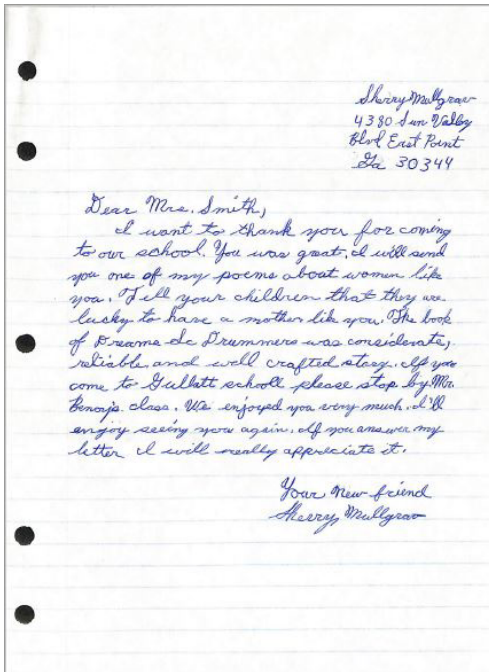 Sherry Mullgrav
4380 Sun Valley
Blvd East Point
Ga 30344
Dear Mrs. Smith,
I want to thank you for coming
to our school. You was great. I will send
you one of my poems about women like
you. Tell your children that they are
lucky to have a mother like you. The book
of Dreams & Drummers was considerate,
reliable, and well crafted story. If you
come to Gullatt schooll please stop by Mr.
class. We enjoyed you very much. I'll
enjoy seeing you again. If you answer my
letter I will really appreciate it.
Your new friend
Sherry Mullgrav